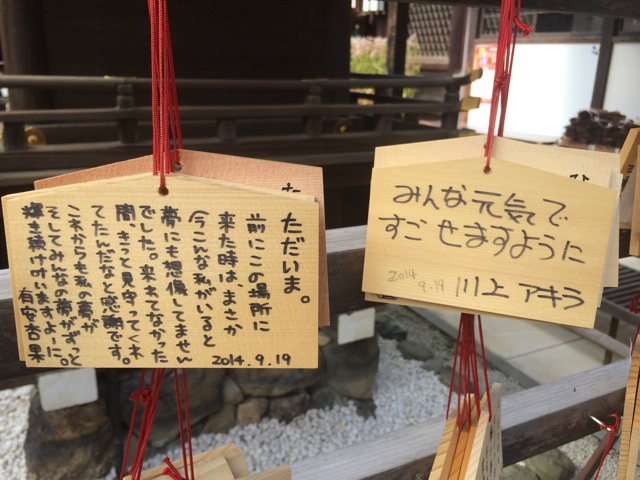 ただいま。
前にこの場所に
来た時は、まさか
今こんな私がいると
夢にも想像してません
でした。来きてなかった
間、きっと見守ってくれ
てたんだなと感謝です。
これからも私の夢が
そしてみんなの夢がずっと
輝き続けていますよーに。
有安杏果
2014.9.19
みんな元気で
すごせますように
2014
9.19
川上アキラ
た